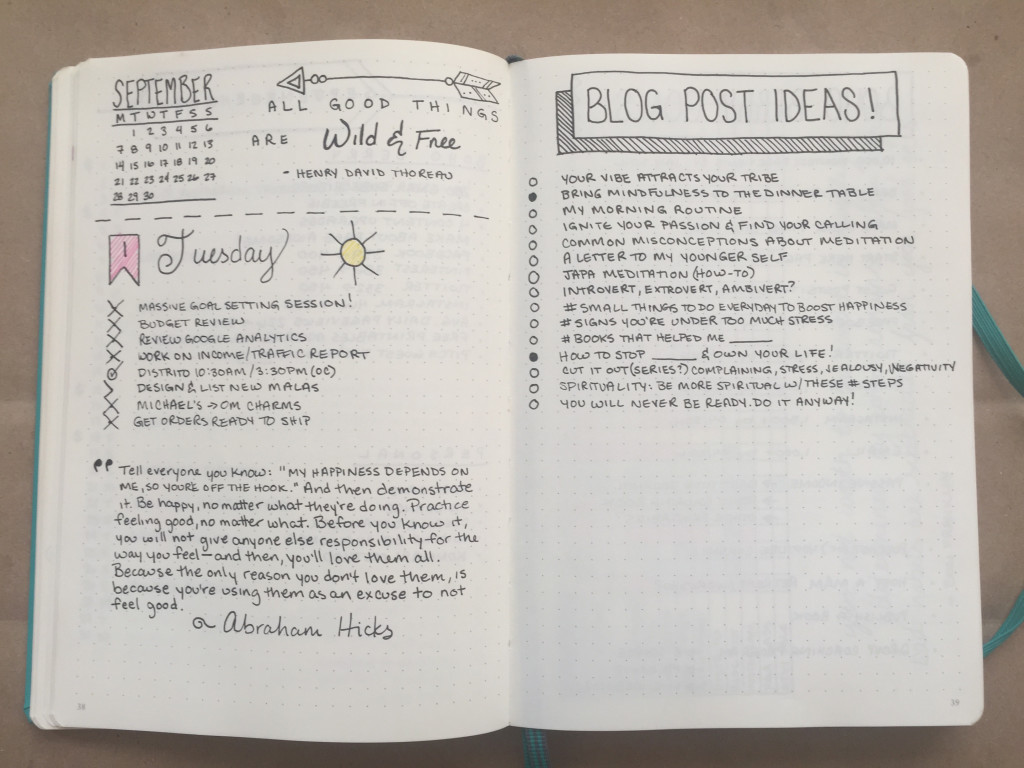 SEPTEMBER
M T W T F S S
1 2 3 4 5 6
7 8 9 10 11 12 13
14 15 16 17 18 19 20
21 22 23 24 25 26 27
28 29 30
ALL GOOD THINGS
ARE Wild & Free
- HENRY DAVID THOREAU
1 Tuesday
MASSIVE GOAL SETTING SESSION!
BUDGET REVIEW
REVIEW GOOGLE ANALYTICS
WORK ON INCOME/TRAFFIC REPORT
DISTRITO 10:30AM / 3:30PM (OC)
DESIGN & LIST NEW MALAS
MICHAEL'S → OM CHARMS
GET ORDERS READY TO SHIP
" Tell everyone you know: "MY HAPPINESS DEPENDS ON
ME, SO YOU'RE OFF THE HOOK." And then demonstrate
it. Be happy, no matter what they're doing. Practice
feeling good, no matter what. Before you know it,
you will not give anyone else responsibility for the
way you feel - and then, you'll love them all.
Because the only reason you don't love them, is
because you're using them as an excuse to not
feel good.
~ Abraham Hicks
38
BLOG POST IDEAS!
YOUR VIBE ATTRACTS YOUR TRIBE
BRING MINDFULNESS TO THE DINNER TABLE
MY MORNING ROUTINE
IGNITE YOUR PASSION & FIND YOUR CALLING
COMMON MISCONCEPTIONS ABOUT MEDITATION
A LETTER TO MY YOUNGER SELF
JAPA MEDITATION (HOW-TO)
INTROVERT, EXTROVERT, AMBIVERT?
# SMALL THINGS TO DO EVERYDAY TO BOOST HAPPINESS
# SIGNS YOU'RE UNDER TOO MUCH STRESS
# BOOKS THAT HELPED ME ______
HOW TO STOP ______ & OWN YOUR LIFE!
CUT IT OUT (SERIES?) COMPLAINING, STRESS, JEALOUSY, NEGATIVITY
SPIRITUALITY: BE MORE SPIRITUAL W/ THESE # STEPS
YOU WILL NEVER BE READY. DO IT ANYWAY!
39